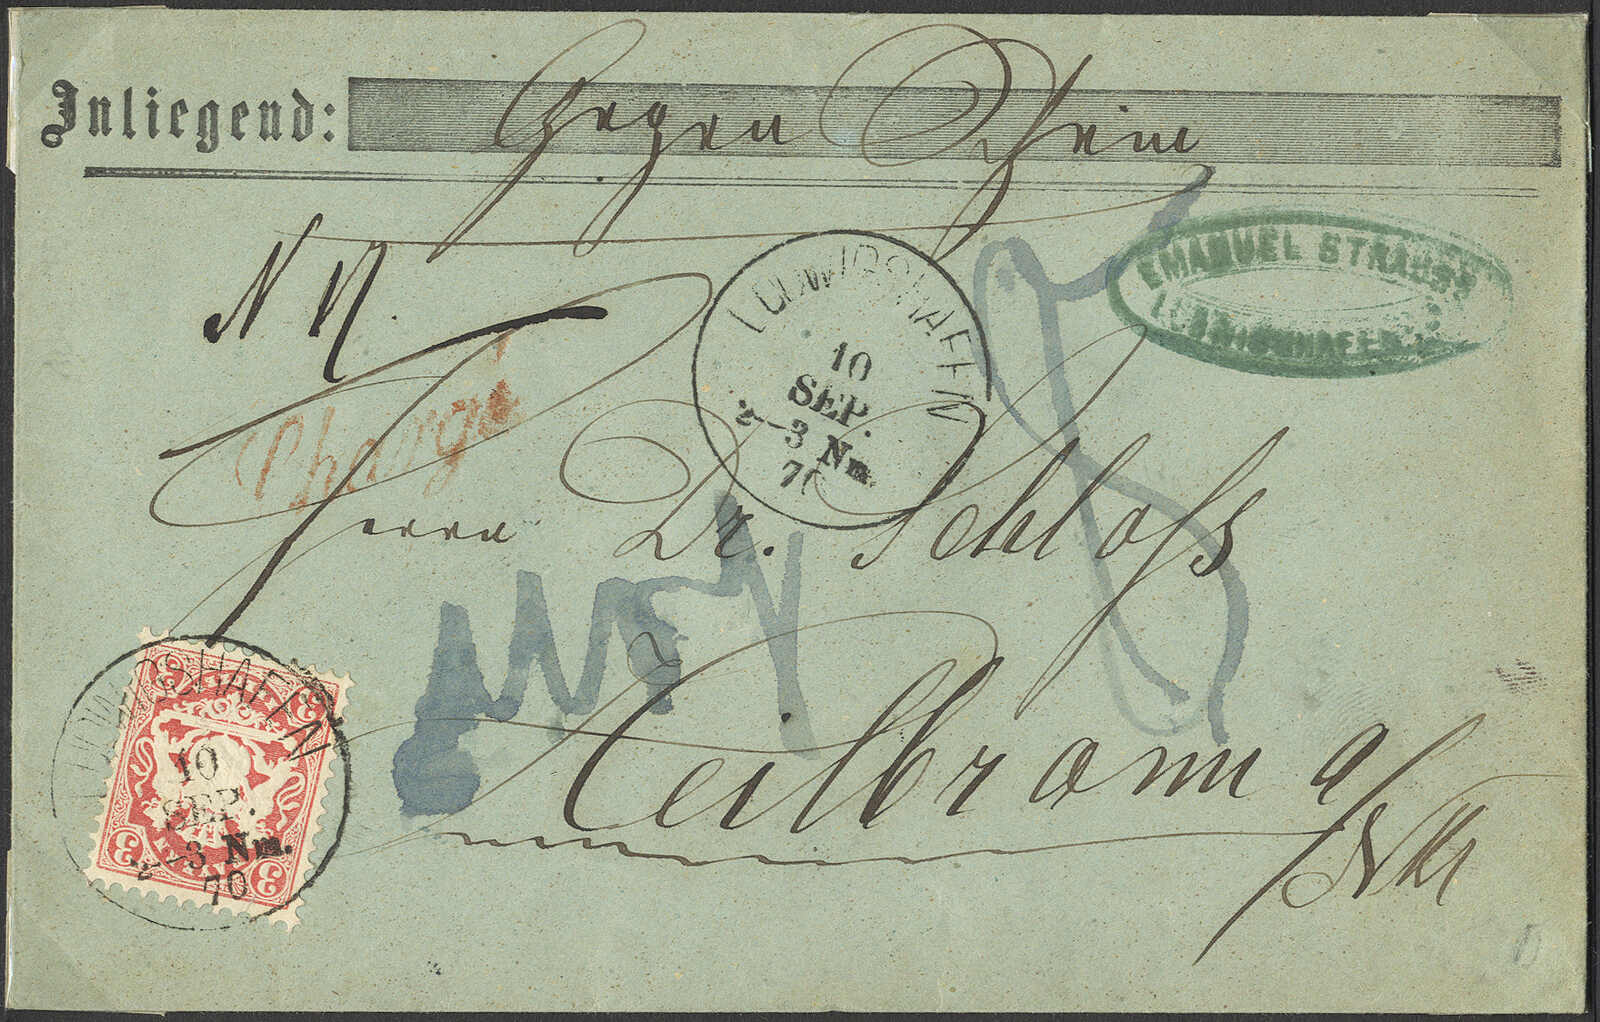 Inliegend: Gegen Schein
EMANUEL STRAUSS
LUDWIGSHAFEN
N N.
LUDWIGSHAFEN
10
SEP.
2-3 Nm.
70
Chargé
Herrn Dr. Schloss
Heilbronn a/Nkr
LUDWIGSHAFEN
10
SEP.
2-3 Nm.
70
3
3
3
3